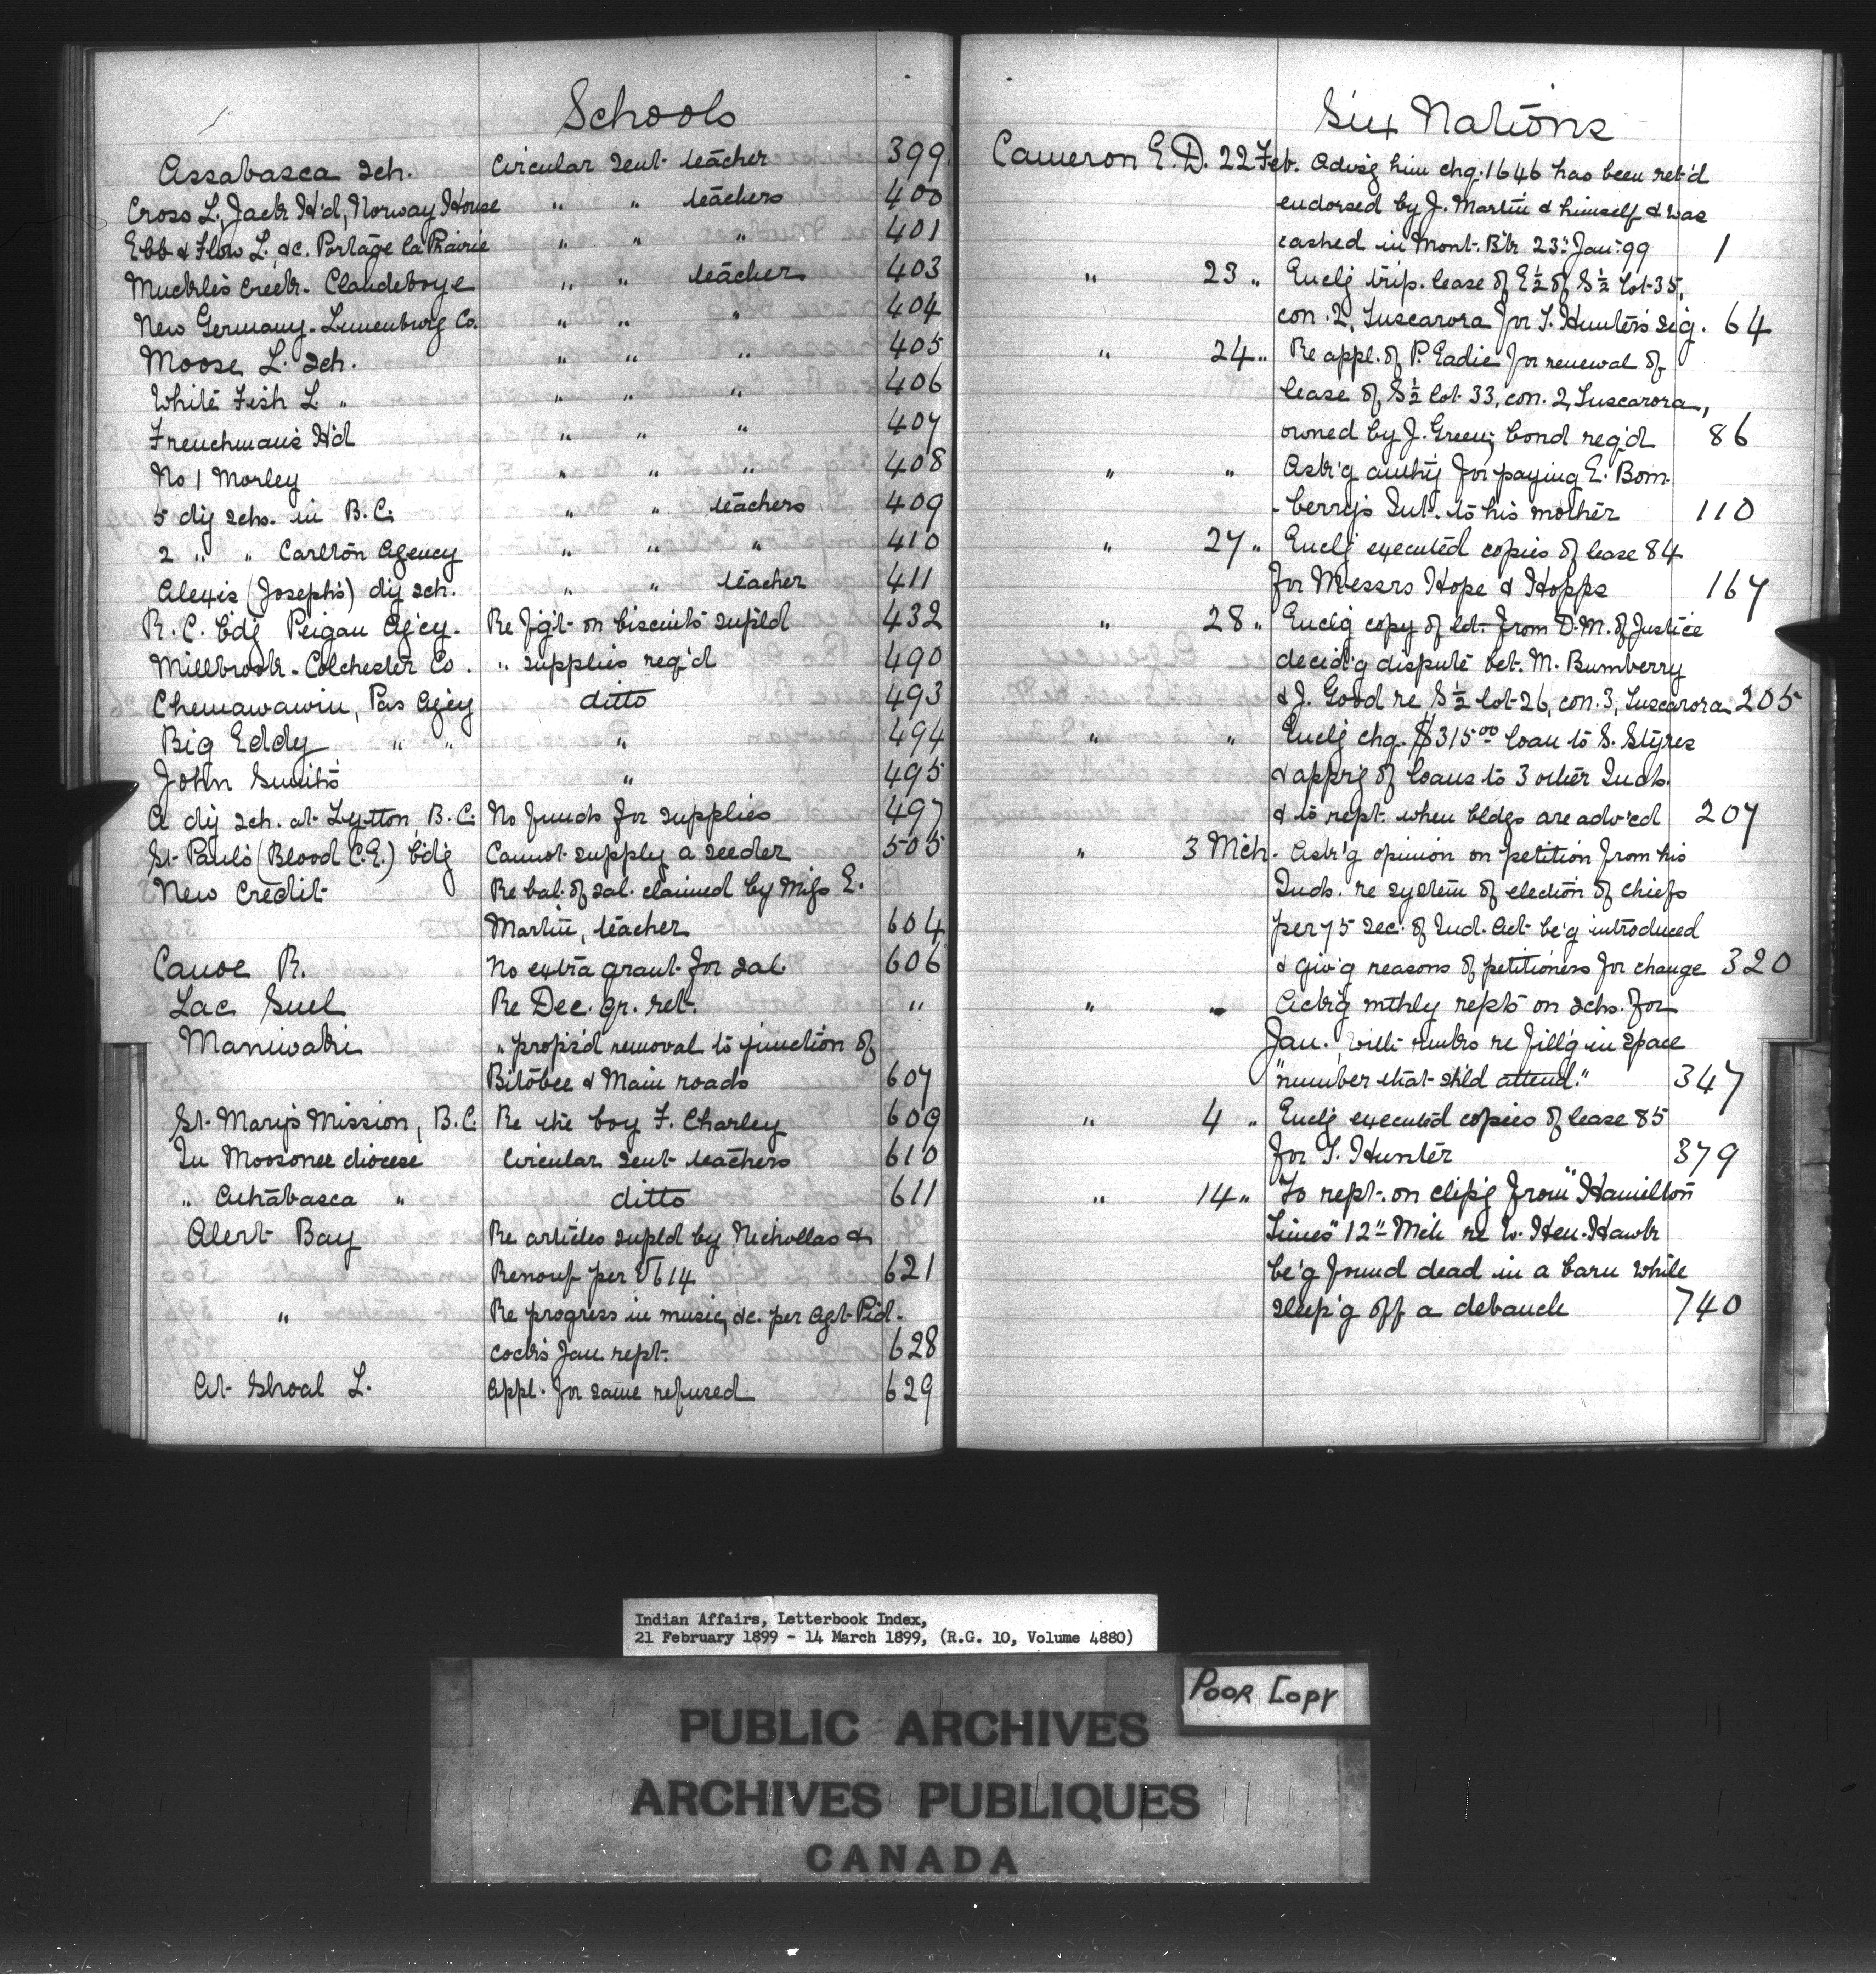 Schools
Assabasca sch. Circular sent teacher 399
Cross L., Jack H'd, Norway House " " teachers 400
Ebb & Flow L. &c. Portage la Prairie " " " 401
Muckle's Creek - Clandeboye " " teacher 403
New Germany - Lunenburg Co. " " " 404
Moose L. sch. " " " 405
White Fish L. " " " " 406
Frenchman's H'd " " " 407
No 1 Morley " " " 408
5 dy schs. in B.C. " " teachers 409
2 " " Carlton Agency " " " 410
Alexis (Joseph's) dy sch. " " teacher 411
R.C. bdg Peigan Ag'cy. Re f'g't on biscuits supl'd 432
Millbrook - Colchester Co. " supplies req'd 490
Chemawawin, Pas Agcy ditto 493
Big Eddy " " " 494
John Smith's " 495
A dy sch. at Lytton, B.C. No funds for supplies 497
St. Paul's (Blood C.E.) bdg Cannot supply a seeder 505
New Credit Re bal. of sal. claimed by Miss E.
Martin, teacher 604
Canoe R. No extra grant for sal. 606
Lac Suel Re Dec. qr. ret. "
Maniwaki " prop's'd removal to junction of
Bitobee & Main roads 607
St. Mary's Mission, B.C. Re the boy F. Charley 609
In Moosonee diocese Circular sent teachers 610
" Athabasca " ditto 611
Alert Bay Re articles supld by Nicholles &
Renouf per V614 621
" Re progress in music, &c. per Agt Pid-
cock's Jan. rept. 628
At Shoal L. Appl. for same refused 629
Six Nations
Cameron E.D. 22 Feb. Advis'g him chq. 1646 has been ret'd
endorsed by J. Martin & himself & was
cashed in Mont. B'k 23d Jan. 99 1
" 23 " Enclg trip. lease of E½ of S½ lot 35,
con. 2, Tuscarora for T. Hunter's sig. 64
" 24 " Re appl. of P. Eadie for renewal of
lease of S½ lot 33, con. 2, Tuscarora,
owned by J. Green; bond req'd 86
" " Ask'g auth'y for paying E. Bom-
-berry's Int. to his mother 110
" 27 " Enclg executed copies of lease 84
for Messrs Hope & Hopps 167
" 28 " Enclg copy of let. from D.M. of Justice
decid'g dispute bet. M. Bumberry
& J. Good re S½ lot 26, con. 3, Tuscarora 205
" " Enclg chq. $315.00 loan to S. Styres
& appr'g of loans to 3 other Inds.
& to rept. when bldgs are adv'ced 207
" 3 Mch. Ask'g opinion on petition from his
Inds. re system of election of chiefs
per 75 sec. of Ind. Act be'g introduced
& giv'g reasons of petitioners for change 320
" " Ack'g mthly repts on schs. for
Jan., with rmks re fill'g in space
"number that sh'ld attend." 347
" 4 " Enclg executed copies of lease 85
for T. Hunter 379
" 14 " To rept. on clip'g from "Hamilton
Times" 12th Mch re W. Hen-Hawk
be'g found dead in a barn while
sleep'g off a debauch 740
Indian Affairs, Letterbook Index,
21 February 1899 - 14 March 1899, (R.G. 10, Volume 4880)
POOR COPY
PUBLIC ARCHIVES
ARCHIVES PUBLIQUES
CANADA